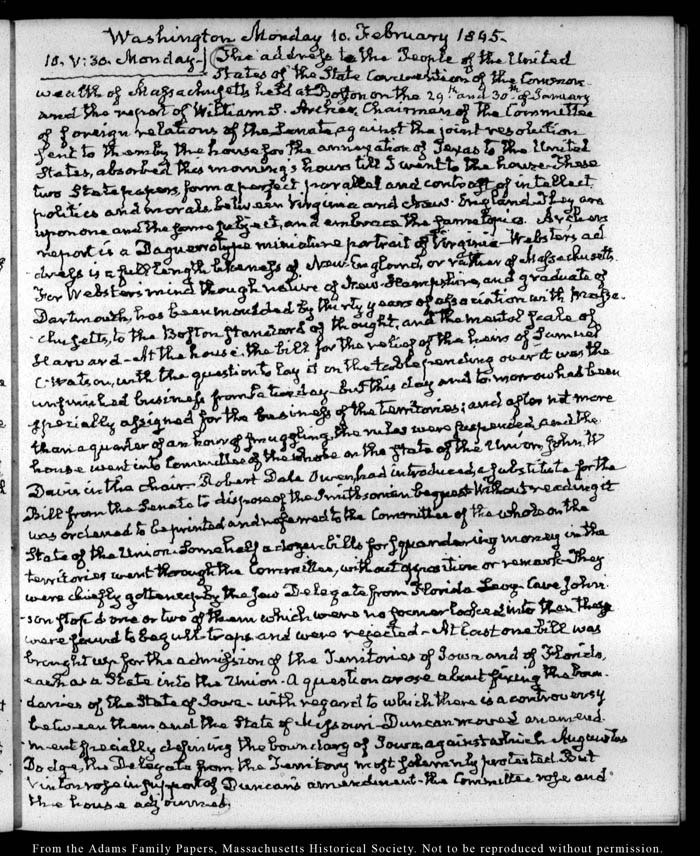 Washington Monday 10. February 1845.
10. V: 30. Monday. The address to the People of the United
States of the State Convention of the Common-
wealth of Massachusetts held at Boston on the 29th and 30th of January
and the report of William S. Archer, Chairman of the Committee
of foreign relations of the Senate against the joint resolution
sent to them by the house for the annexation of Texas to the United
States, absorbed this morning's hours till I went to the house. These
two State papers, form a perfect parallel and contrast of intellect,
politics and morals between Virginia and New-England. They are
upon one and the same subject, and embrace the same topics. Archer's
report is a Daguerrotype miniature portrait of Virginia. Webster's ad
dress is a full length likeness of New-England, or rather of Massachusetts.
For Webster's mind though native of New Hampshire, and graduate of
Dartmouth, has been moulded by thirty years of association with Massa-
chusetts, to the Boston standard of thought, and the mental scale of
Harvard. At the house the bill for the relief of the heirs of Samuel
C. Watson, with the question to lay it on the table pending over it was the
unfinished business from Saturday. But this day and to-morrow had been
specially assigned for the business of the territories; and after not more
than a quarter of an hour of struggling, the rules were suspended and the
house went into Committee of the whole on the state of the Union, John W
Davis in the chair. Robert Dale Owen, had introduced a substitute for the
Bill from the Senate to dispose of the Smithsonian bequest. Without reading it
was ordered to be printed and referred to the Committee of the whole on the
State of the Union. Some half a dozen bills for squandering money in the
territories went through the Committee, without opposition or remark. They
were chiefly gotten up by the Jew Delegate from Florida Levy. Cave John-
son stop'd one or two of them which were no sooner looked into than they
were found to be gull-traps and were rejected. At last one bill was
brought up for the admission of the Territories of Iowa and of Florida,
each as a State into the Union. A question arose about fixing the boun
daries of the State of Iowa. with regard to which there is a controversy
between them and the State of Missouri. Duncan moved an amend-
ment specially defining the boundary of Iowa against which Augustus
Dodge, the Delegate from the Territory most solemnly protested. But
Vinton rose in support of Duncan's amendment. the Committee rose and
the house adjourned.
From the Adams Family Papers, Massachusetts Historical Society. Not to be reproduced without permission.